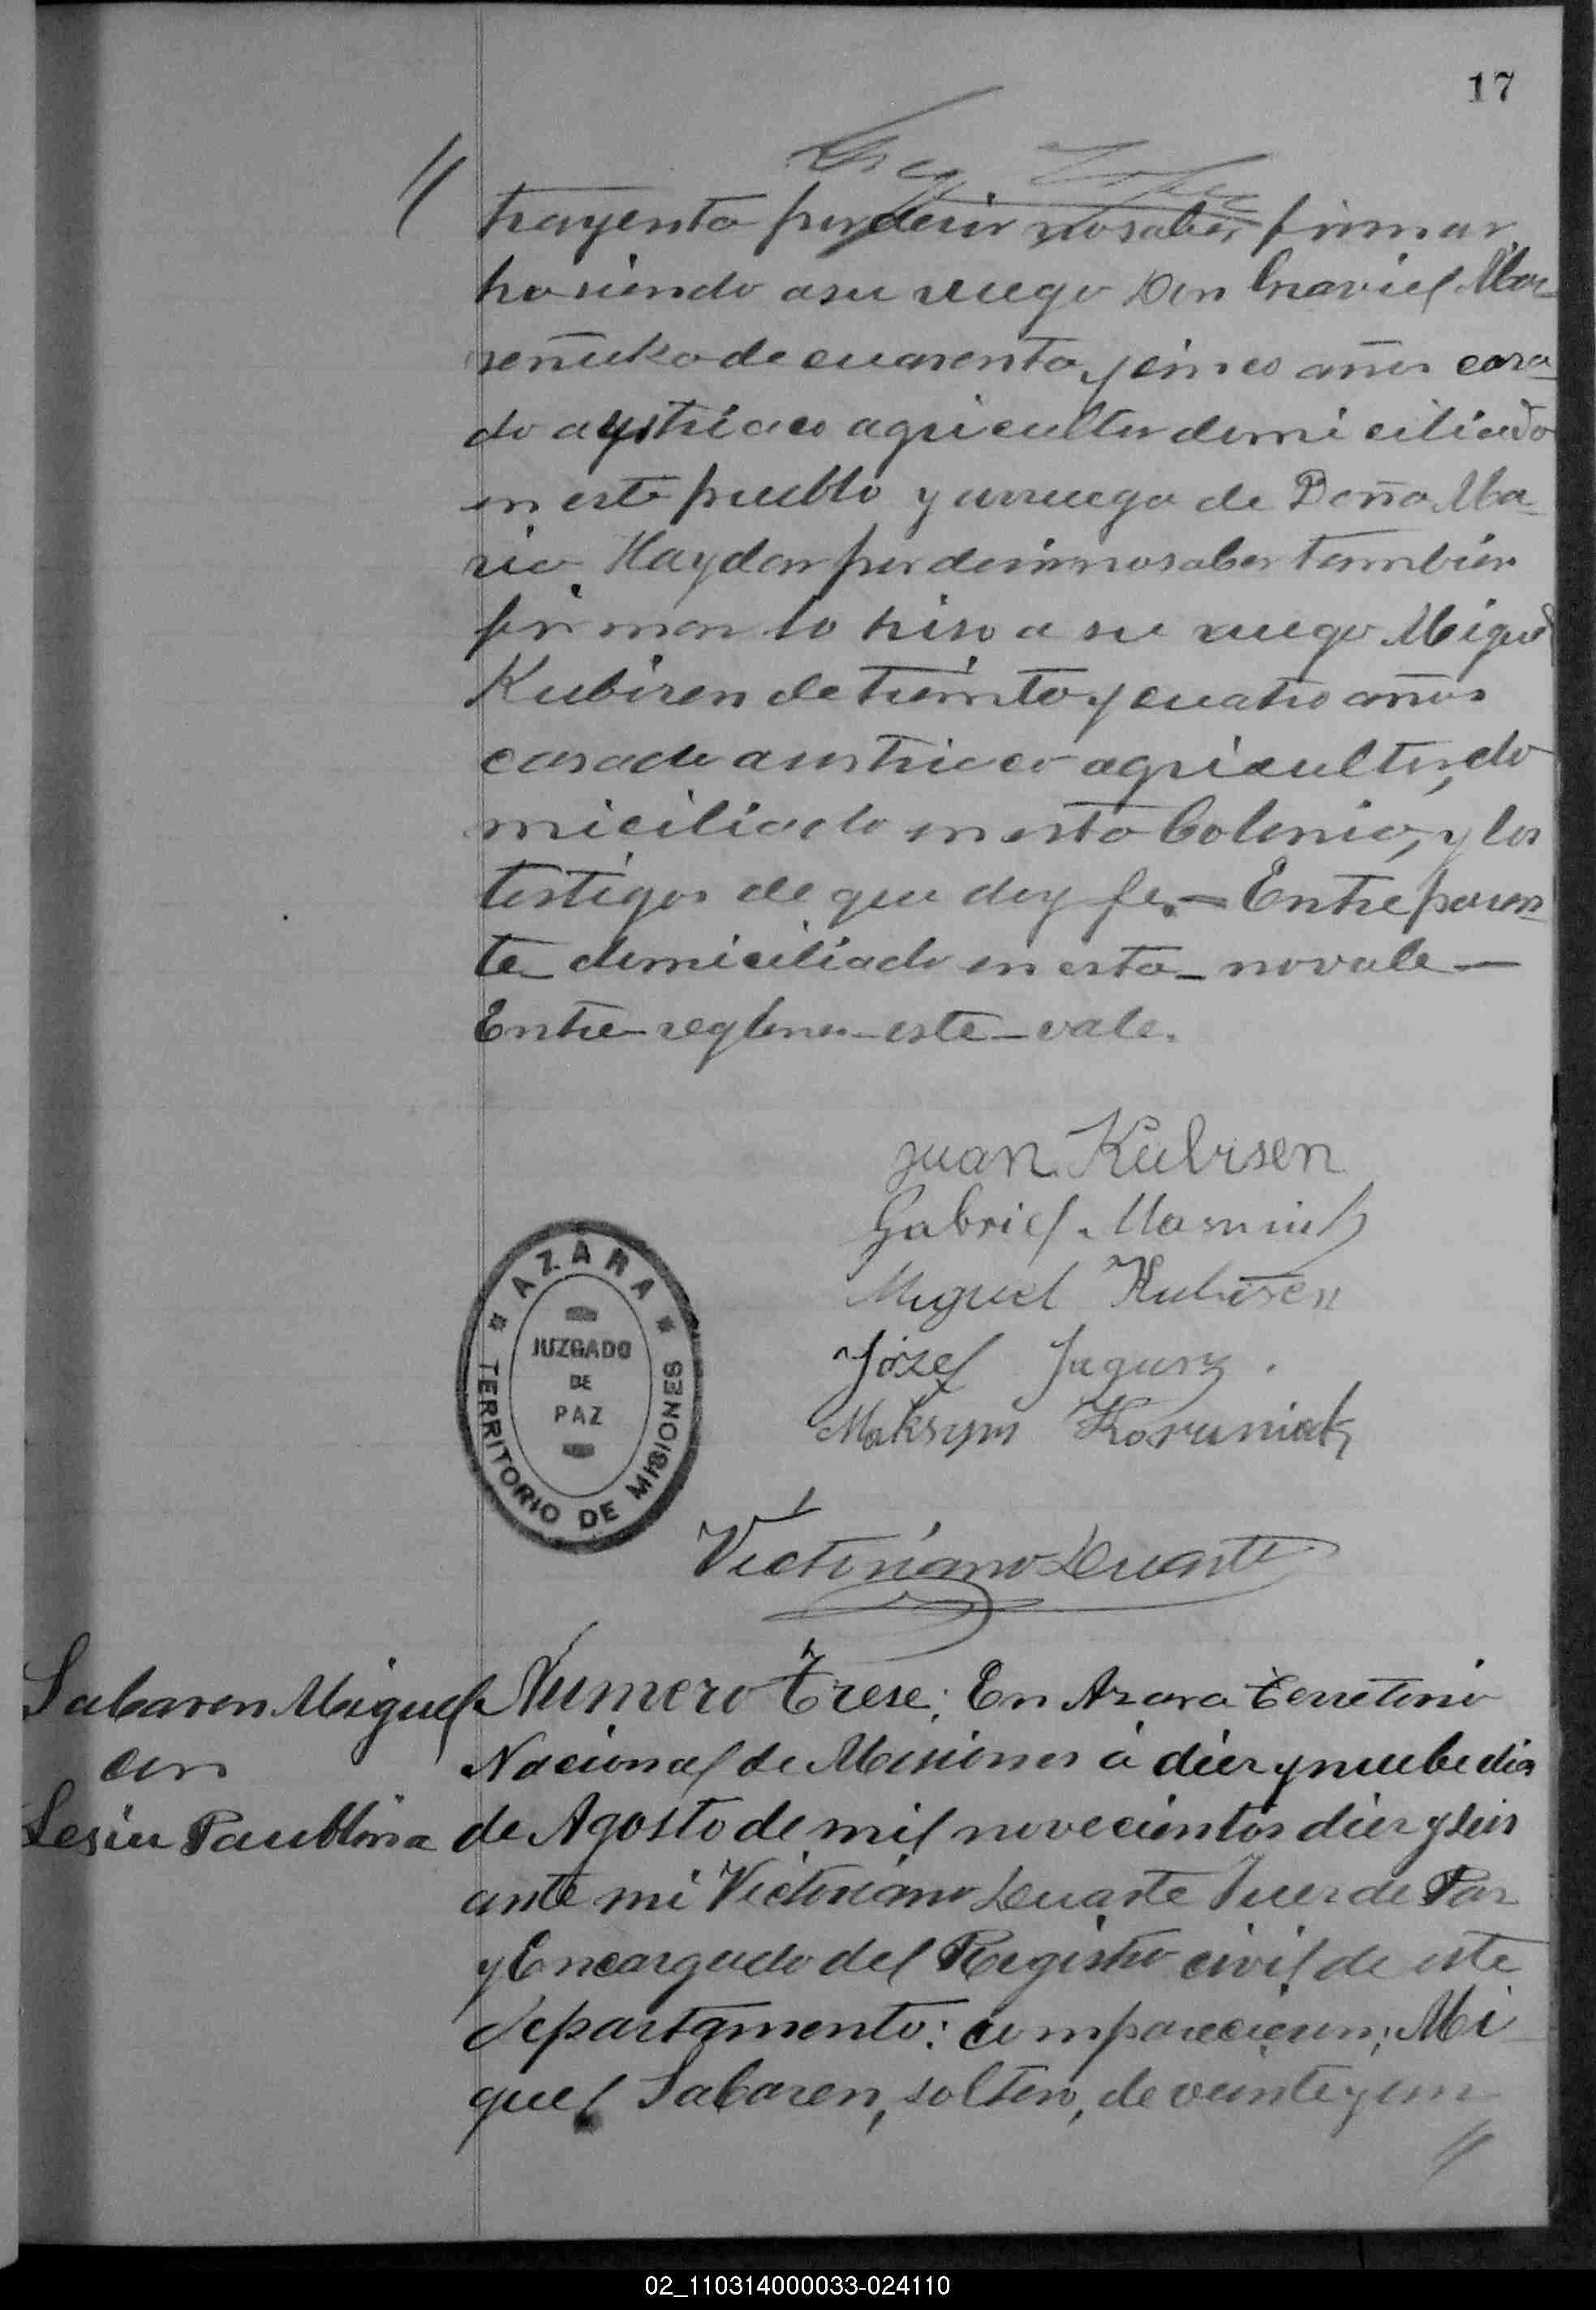 17
//
trayenta por decir no saber firmar
hasiendo a su ruego Don Graviel Mas
señuka de cuarenta y cinco años casa
do austriaco agricultor domiciliado
en este pueblo y a ruego de Doña Ma
ria Haydar por decir no saber tambien
firmar lo hiso a su ruego Miguel
Kubisen de treinta y cuatro años
casado austriaco agricultor, do
miciliado en esta Colonia, y los
testigos de que doy fe. = Entre paren
te domiciliado en esta _ no vale —
Entre reglones _ este _ vale.
Juan Kubisen
Gabriel Masniuk
Miguel Kubisen
Józef Jagusz.
Maksym Koruniak
Victoriano Duarte
* AZARA *
JUZGADO
DE
PAZ
TERRITORIO DE MISIONES
Sabaren Miguel
con
Lesiu Paublina
Numero Trese; En Azara Territorio
Nacional de Misiones a diez y nuebe dias
de Agosto de mil novecientos diez y seis
ante mi Victoriano Duarte Juez de Paz
y Encargado del Registro civil de este
departamento: comparecieron; Mi
guel Sabaren, soltero, de veinte y un
//
02_110314000033-024110